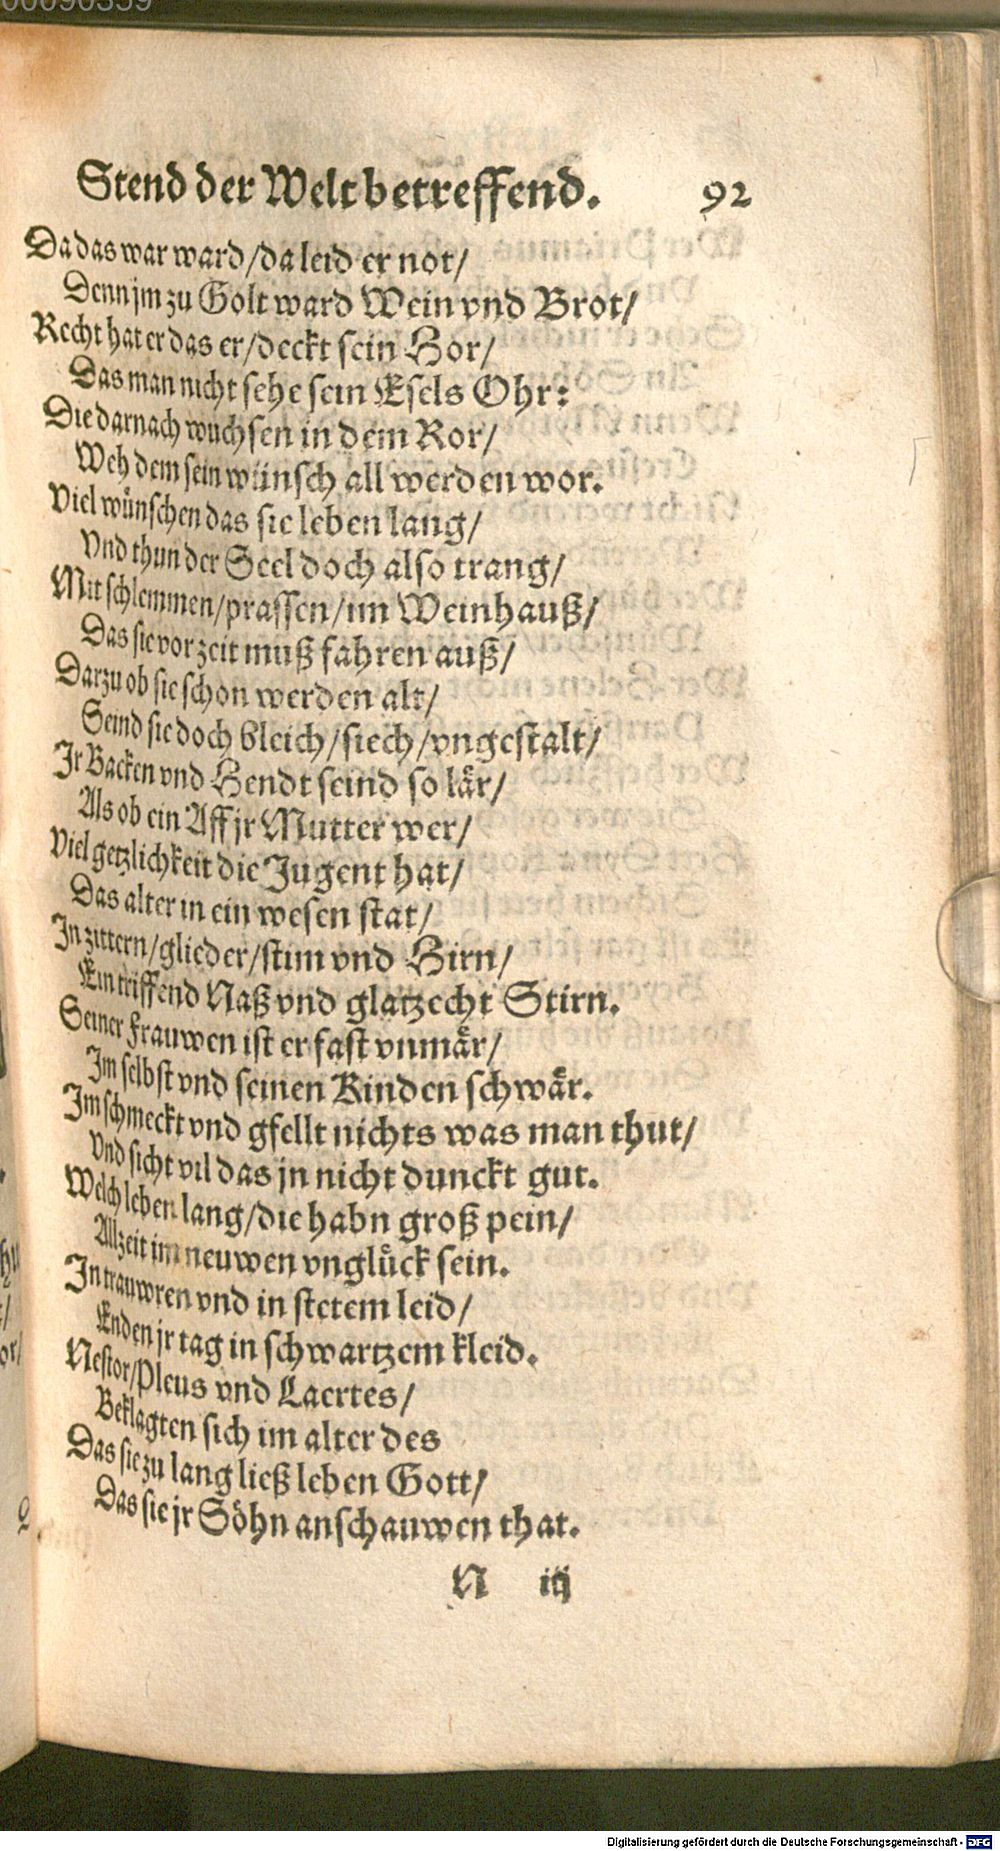 00090359
Stend der Welt betreffend. 92
Da das war ward/da leid er not/
Denn jm zu Golt ward Wein vnd Brot/
Recht hat er das er/deckt sein Hor/
Das man nicht sehe sein Esels Ohr:
Die darnach wuchsen in dem Ror/
Weh dem sein wünsch all werden wor.
Viel wünschen das sie leben lang/
Vnd thun der Seel doch also trang/
Mit schlemmen/prassen/im Weinhauß/
Das sie vor zeit muß fahren auß/
Darzu ob sie schon werden alt/
Seind sie doch bleich/siech/vngestalt/
Jr Backen vnd Hendt seind so lär/
Als ob ein Aff jr Mutter wer/
Viel getzlichkeit die Jugent hat/
Das alter in ein wesen stat/
Jn zittern/glieder/stim vnd Hirn/
Ein triffend Naß vnd glatzecht Stirn.
Seiner Frauwen ist er fast vnmär/
Jm selbst vnd seinen Kinden schwär.
Jm schmeckt vnd gfellt nichts was man thut/
Vnd sicht vil das jn nicht dunckt gut.
Welch leben lang/die habn groß pein/
Allzeit im neuwen vnglück sein.
Jn trauwren vnd in stetem leid/
Enden jr tag in schwartzem kleid.
Nestor/Pleus vnd Laertes/
Beklagten sich im alter des
Das sie zu lang ließ leben Gott/
Das sie jr Söhn anschauwen that.
N iij
Digitalisierung gefördert durch die Deutsche Forschungsgemeinschaft - DFG